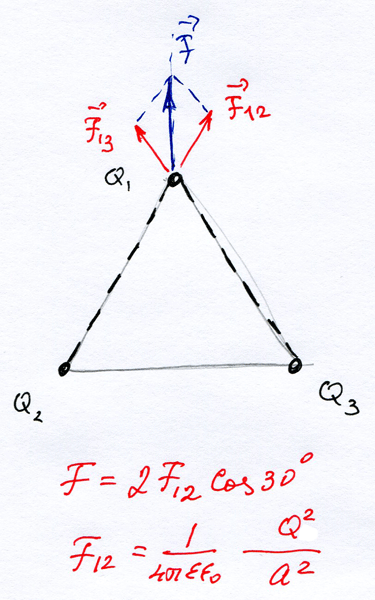 F⃗
F⃗₁₃ F⃗₁₂
Q₁
Q₂ Q₃
F = 2 F₁₂ Cos 30°
F₁₂ = 1/(4πεε₀) Q²/a²